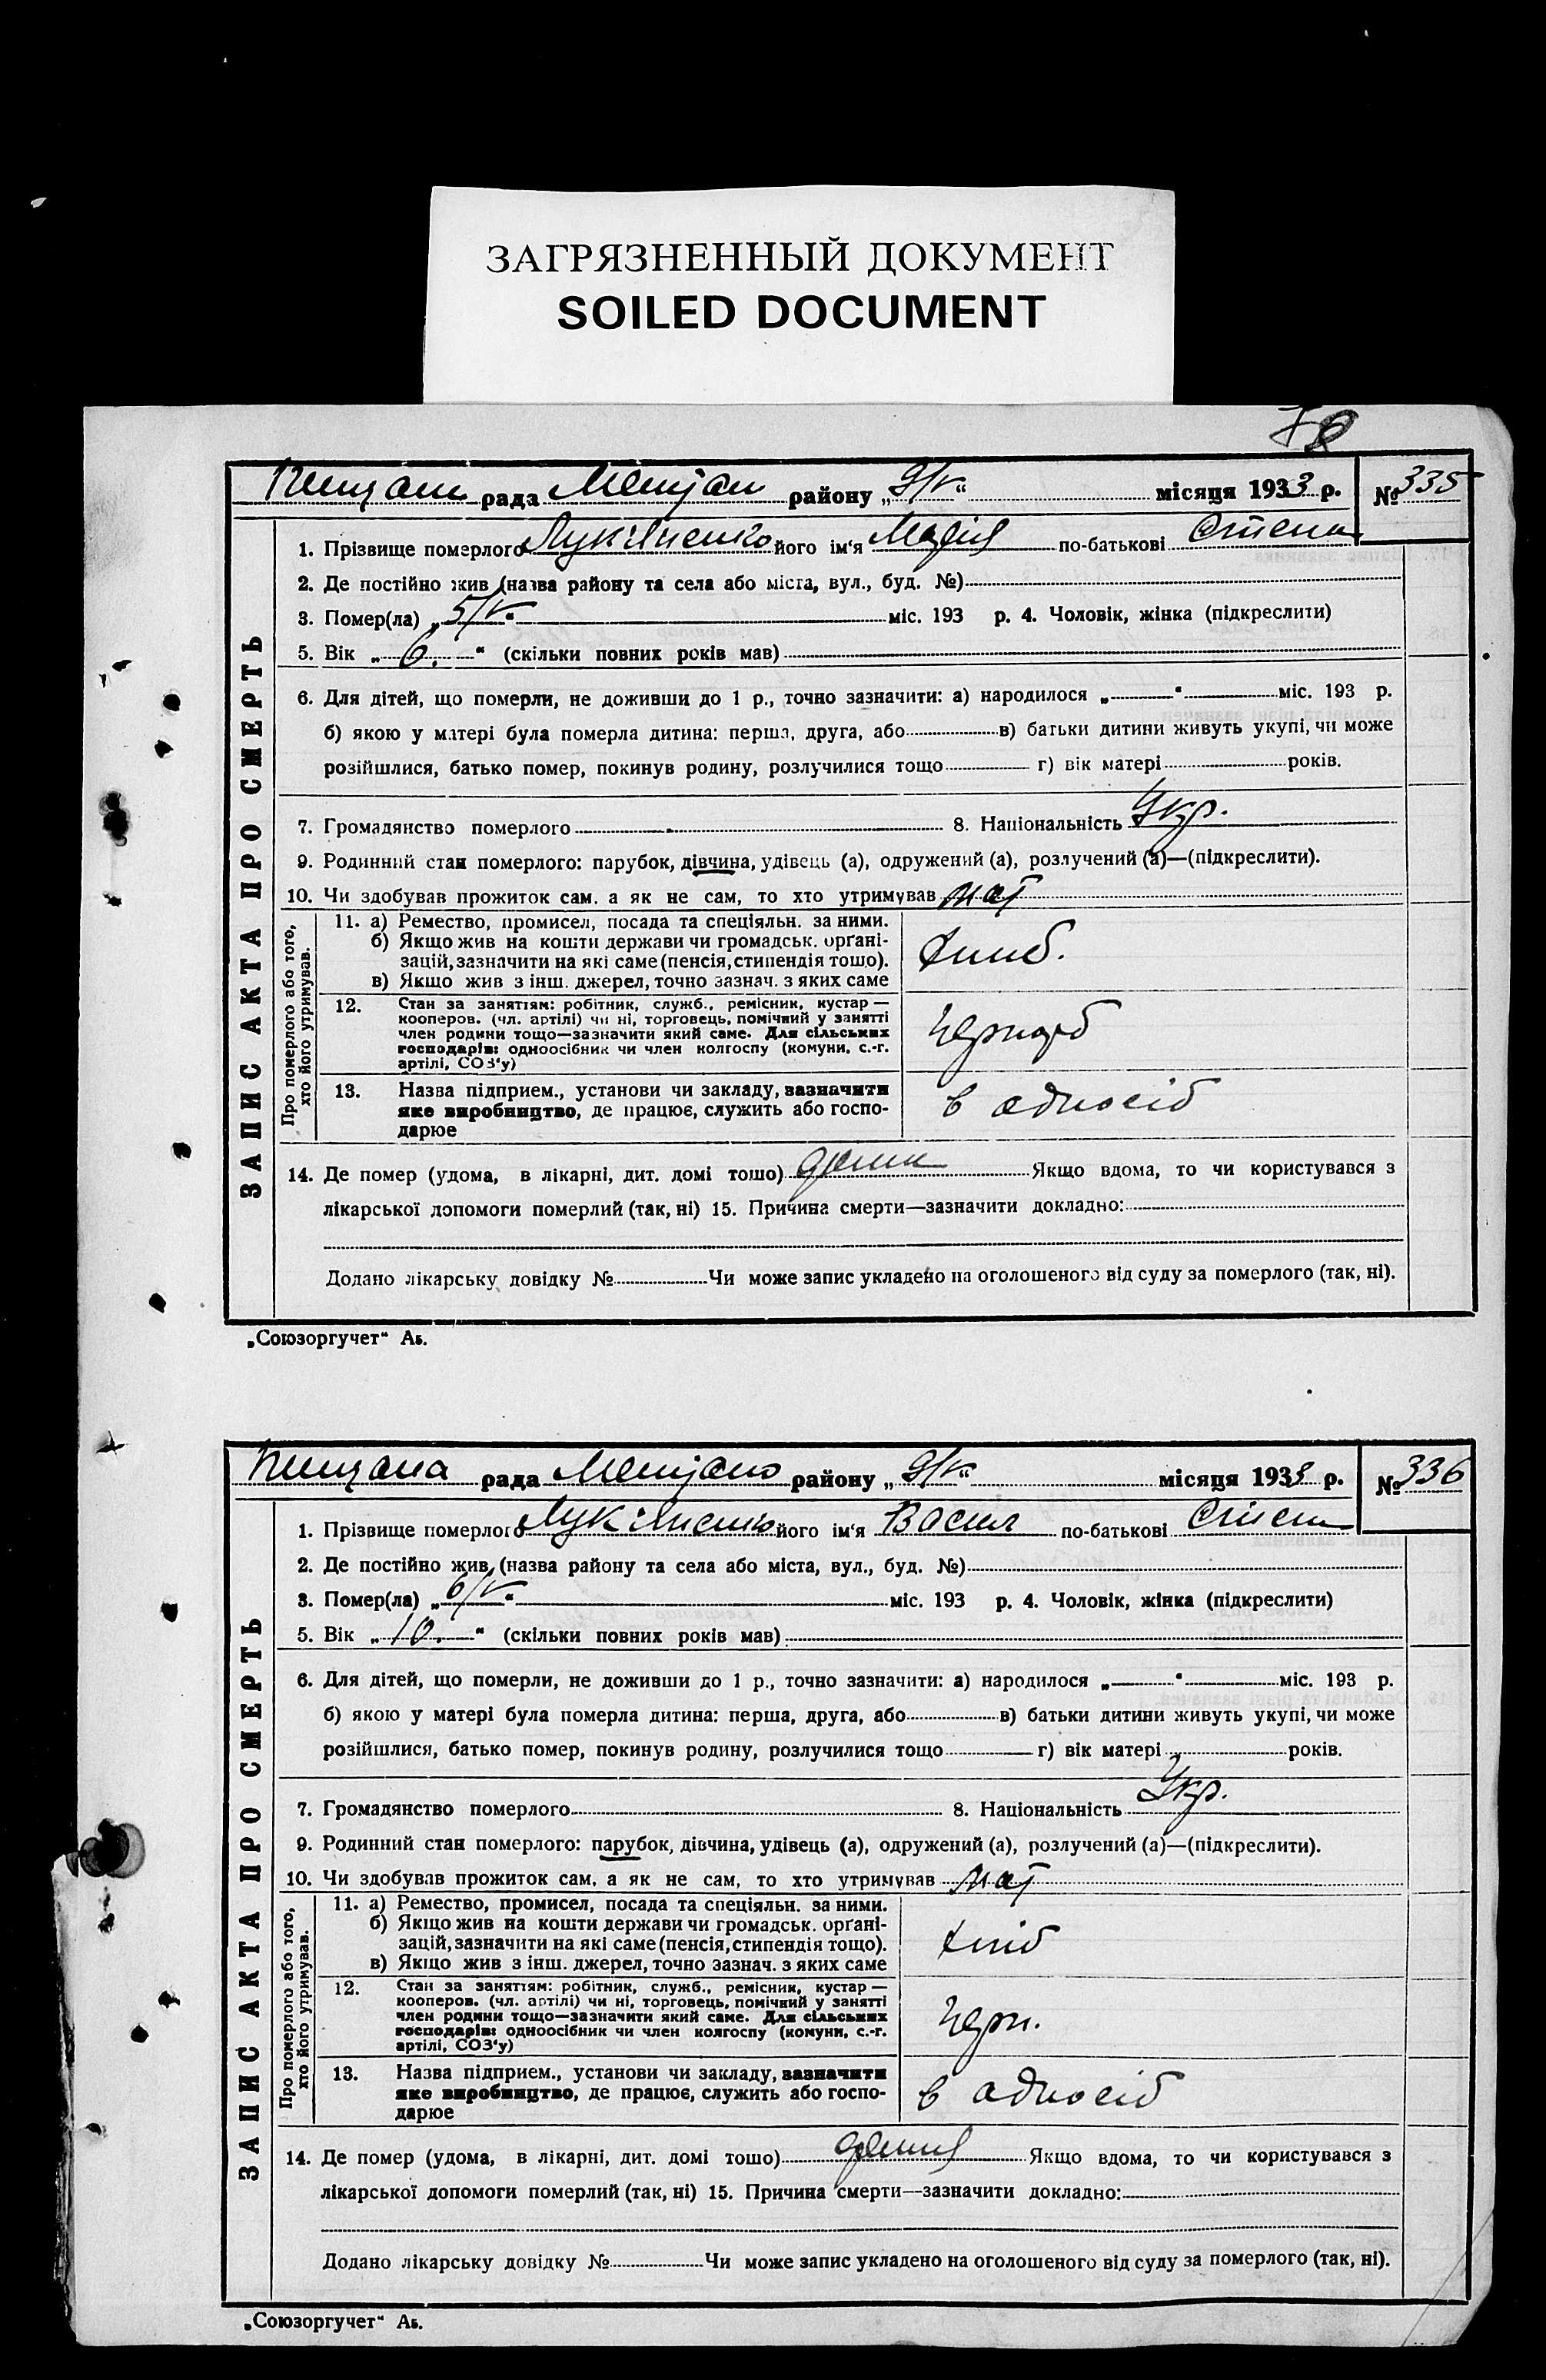 ЗАГРЯЗНЕННЫЙ ДОКУМЕНТ
SOILED DOCUMENT
рада району „ 9/V “ місяця 1933 р. № 335
ЗАПИС АКТА ПРО СМЕРТЬ
1. Прізвище померлого Лук'яненко його ім'я Марія по-батькові Степан
2. Де постійно жив (назва району та села або міста, вул., буд. №)
3. Помер(ла) „ 5/V “ міс. 193 р. 4. Чоловік, жінка (підкреслити)
5. Вік „ 6. “ (скільки повних років мав)
6. Для дітей, що померли, не доживши до 1 р., точно зазначити: а) народилося „ “ міс. 193 р.
б) якою у матері була померла дитина: перша, друга, або в) батьки дитини живуть укупі, чи може
розійшлися, батько помер, покинув родину, розлучилися тощо г) вік матері років.
7. Громадянство померлого 8. Національність Укр.
9. Родинний стан померлого: парубок, дівчина, удівець (а), одружений (а), розлучений (а)—(підкреслити).
10. Чи здобував прожиток сам, а як не сам, то хто утримував мат
Про померлого або того, хто його утримував.
11. а) Ремество, промисел, посада та спеціяльн. за ними.
б) Якщо жив на кошти держави чи громадськ. орґані-
зацій, зазначити на які саме (пенсія, стипендія тощо).
в) Якщо жив з інш. джерел, точно зазнач. з яких саме
12. Стан за заняттям: робітник, служб., ремісник, кустар —
кооперов. (чл. артілі) чи ні, торговець, помічний у занятті
член родини тощо—зазначити який саме. Для сільських
господарів: одноосібник чи член колгоспу (комуни, с.-г.
артілі, СОЗ'у)
13. Назва підприєм., установи чи закладу, зазначити
яке виробництво, де працює, служить або госпо-
дарює
в одноосіб
14. Де помер (удома, в лікарні, дит. домі тощо) дома Якщо вдома, то чи користувався з
лікарської допомоги померлий (так, ні) 15. Причина смерти—зазначити докладно:
Додано лікарську довідку № Чи може запис укладено на оголошеного від суду за померлого (так, ні).
„Союзоргучет“ Аб.
рада району „ 9/V “ місяця 1933 р. № 336
ЗАПИС АКТА ПРО СМЕРТЬ
1. Прізвище померлого Лук'яненко його ім'я Васил по-батькові Степан
2. Де постійно жив (назва району та села або міста, вул., буд. №)
3. Помер(ла) „ 6/V “ міс. 193 р. 4. Чоловік, жінка (підкреслити)
5. Вік „ 10. “ (скільки повних років мав)
6. Для дітей, що померли, не доживши до 1 р., точно зазначити: а) народилося „ “ міс. 193 р.
б) якою у матері була померла дитина: перша, друга, або в) батьки дитини живуть укупі, чи може
розійшлися, батько помер, покинув родину, розлучилися тощо г) вік матері років.
7. Громадянство померлого 8. Національність Укр.
9. Родинний стан померлого: парубок, дівчина, удівець (а), одружений (а), розлучений (а)—(підкреслити).
10. Чи здобував прожиток сам, а як не сам, то хто утримував мат
Про померлого або того, хто його утримував.
11. а) Ремество, промисел, посада та спеціяльн. за ними.
б) Якщо жив на кошти держави чи громадськ. орґані-
зацій, зазначити на які саме (пенсія, стипендія тощо).
в) Якщо жив з інш. джерел, точно зазнач. з яких саме
хліб
12. Стан за заняттям: робітник, служб., ремісник, кустар —
кооперов. (чл. артілі) чи ні, торговець, помічний у занятті
член родини тощо—зазначити який саме. Для сільських
господарів: одноосібник чи член колгоспу (комуни, с.-г.
артілі, СОЗ'у)
13. Назва підприєм., установи чи закладу, зазначити
яке виробництво, де працює, служить або госпо-
дарює
в одноосіб
14. Де помер (удома, в лікарні, дит. домі тощо) дома Якщо вдома, то чи користувався з
лікарської допомоги померлий (так, ні) 15. Причина смерти—зазначити докладно:
Додано лікарську довідку № Чи може запис укладено на оголошеного від суду за померлого (так, ні).
„Союзоргучет“ Аб.